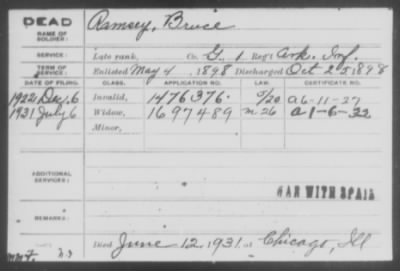 DEAD
NAME OF SOLDIER: Ramsey, Bruce
SERVICE: Late rank, Co. G. 1 Reg't Ark. Inf.
TERM OF SERVICE: Enlisted May 4, 1898 Discharged Oct 25 1898
DATE OF FILING. CLASS. APPLICATION NO. CERTIFICATE NO.
1922 Dec. 6 Invalid, 1476376. 5/20 a6-11-27
1931 July 6 Widow, 1697489 m 26 a1-6-32
Minor,
ADDITIONAL SERVICES:
WAR WITH SPAIN
REMARKS:
Died June 12, 1931, at Chicago, Ill